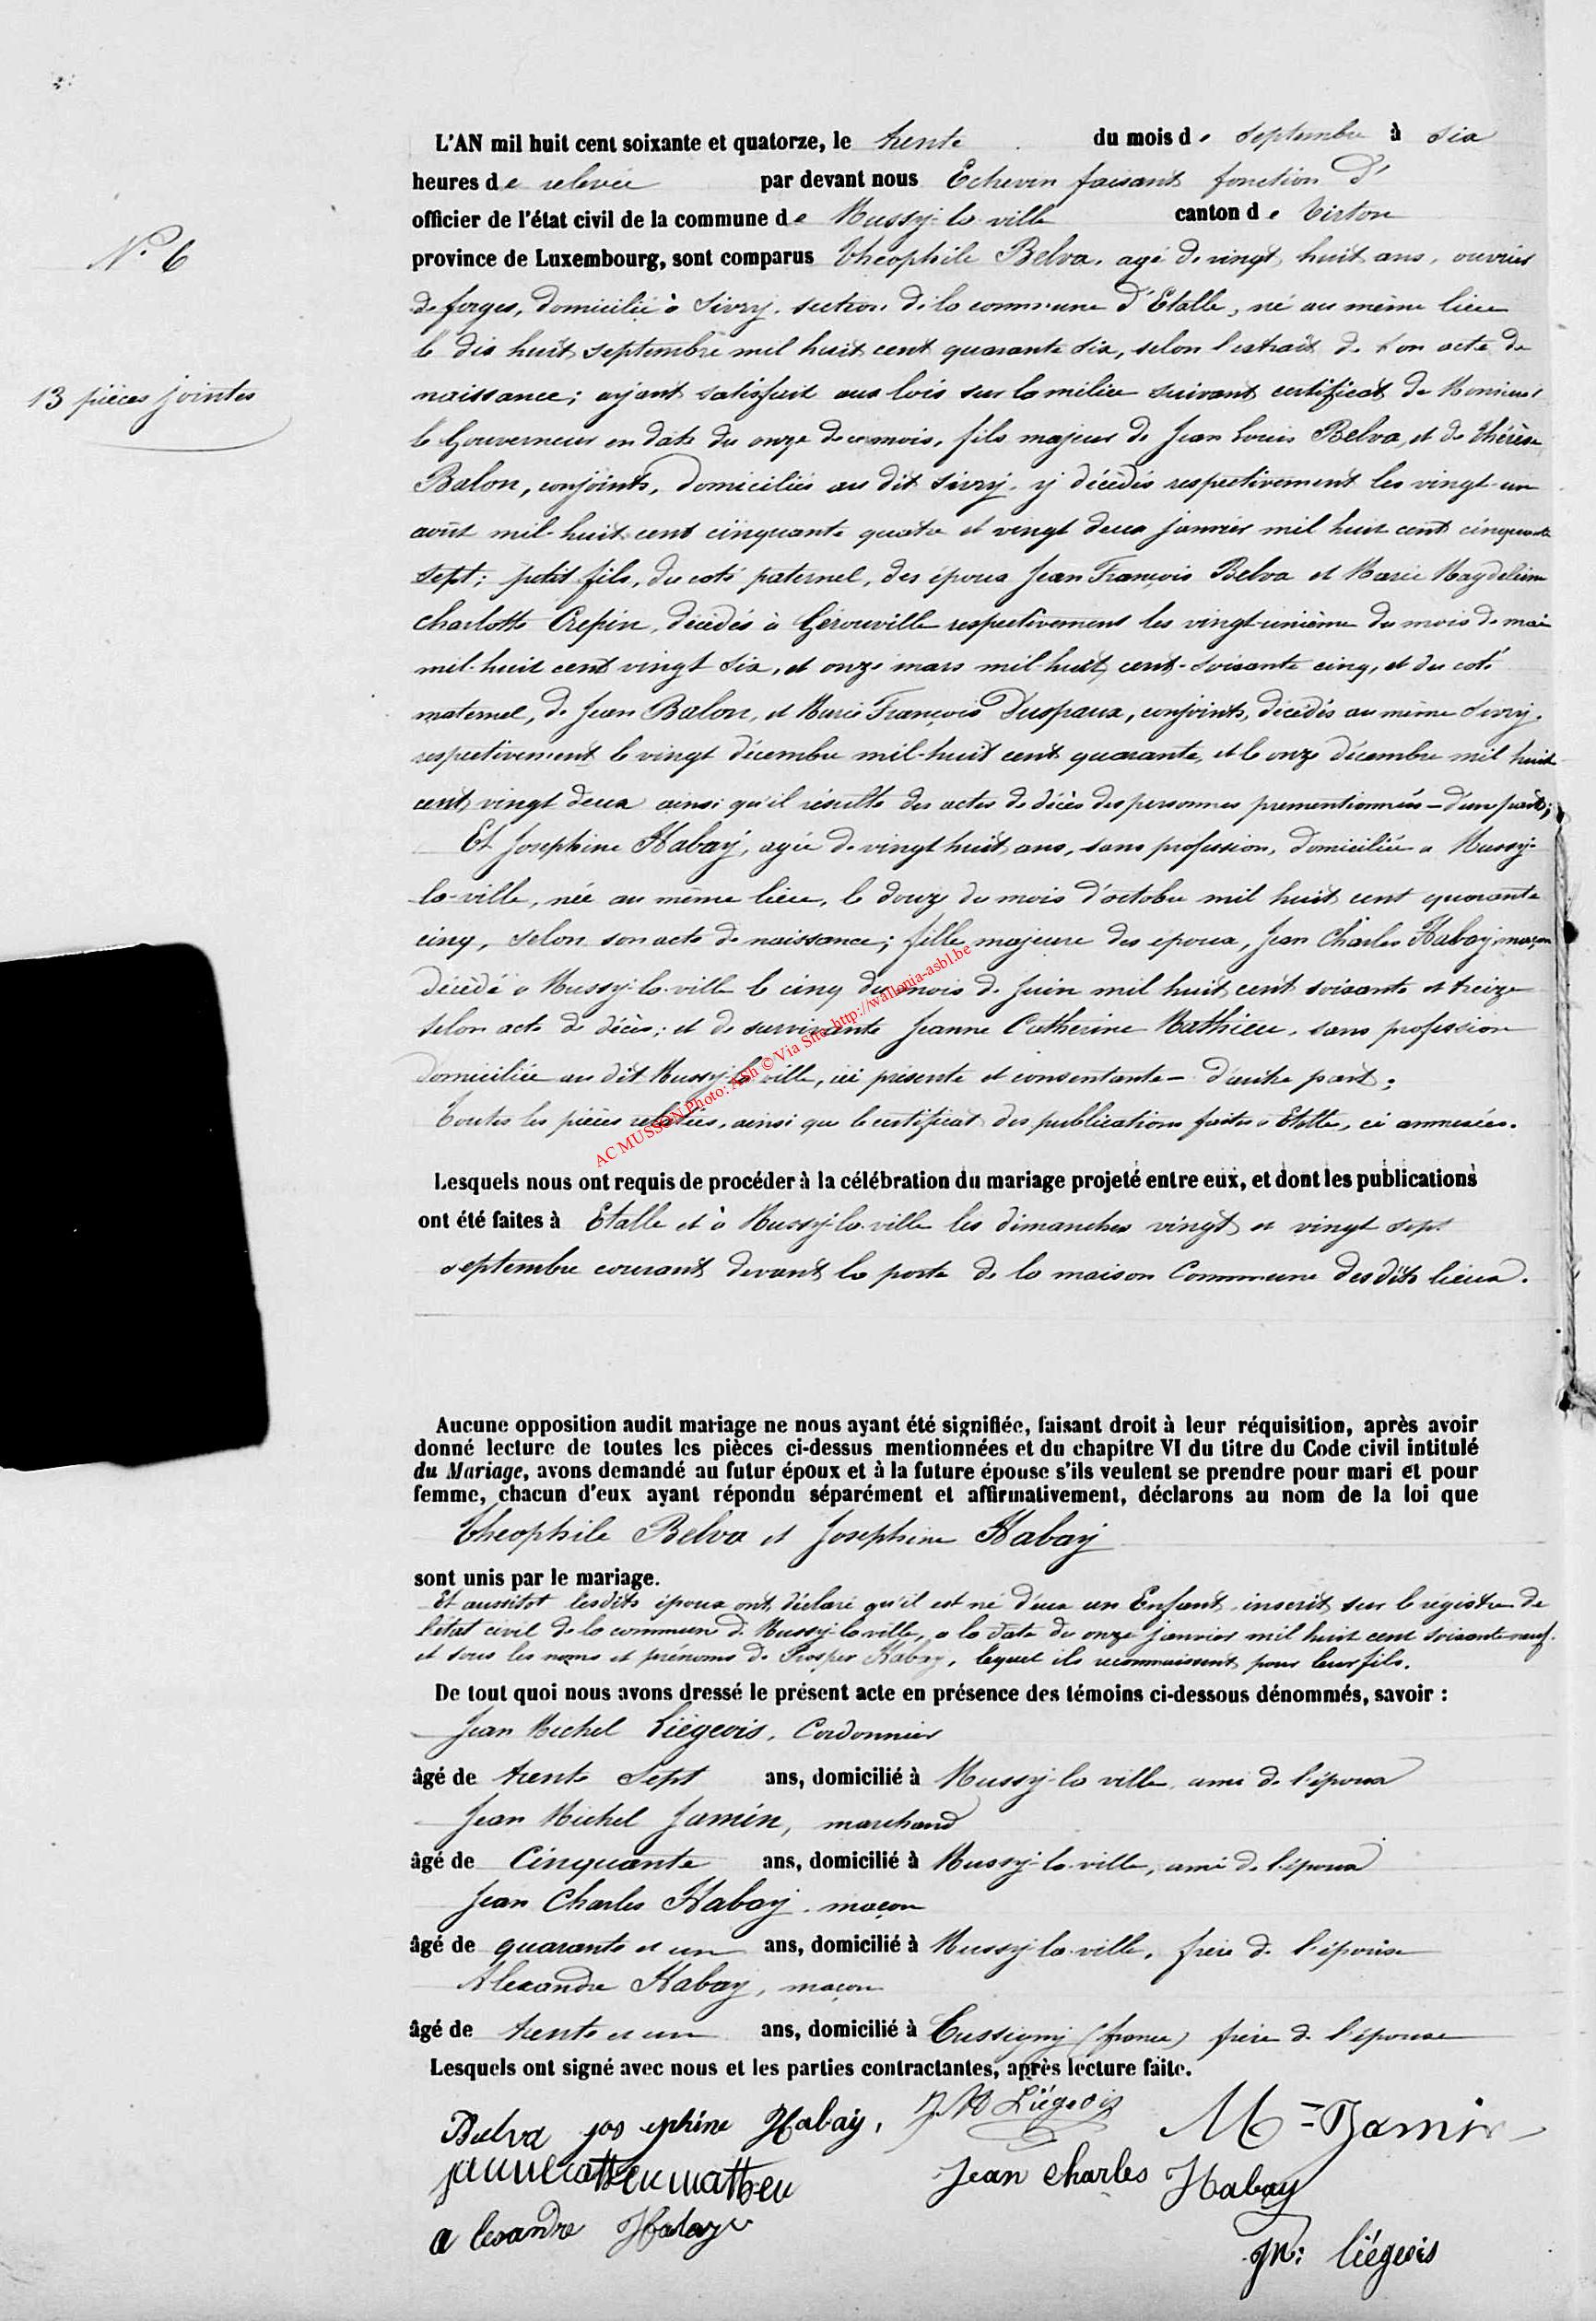 L'AN mil huit cent soixante et quatorze, le trente du mois de septembre à six
heures de relevée par devant nous Echevin faisant fonction d'
officier de l'état civil de la commune de Mussy-la-ville canton de Virton
N° 6
province de Luxembourg, sont comparus Théophile Belva, agé de vingt huit ans, ouvrier
de forges, domicilié à Sivry, section de la commune d'Etalle, né au même lieu
le dix huit septembre mil huit cent quarante six, selon l'extrait de son acte de
13 pièces jointes
naissance; ayant satisfait aux lois sur la milice suivant certificat de Monsieur
le Gouverneur en date du onze de ce mois, fils majeur de Jean Louis Belva, et de Thérèse
Balon, conjoints, domiciliés au dit Sivry, y décédés respectivement les vingt-un
août mil-huit cent cinquante quatre et vingt deux janvier mil huit cent cinquante
sept; petit fils, du coté paternel, des époux Jean François Belva et Marie Magdeleine
Charlotte Crepin, décédés à Gérouville respectivement les vingt-unième du mois de mai
mil-huit cent vingt six, et onze mars mil-huit cent-soixante cinq, et du coté
maternel, de Jean Balon, et Marie François Duspaux, conjoints, décédés au même Sivry,
respectivement le vingt décembre mil-huit cent quarante, et le onze décembre mil huit
cent vingt deux ainsi qu'il résulte des actes de décès des personnes prementionnées – d'une part;
Et Josephine Habay, agée de vingt huit ans, sans profession, domiciliée a Mussy-
la-ville, née au même lieu, le douze du mois d'octobre mil huit cent quarante
cinq, selon son acte de naissance; fille majeure des époux, Jean Charles Habay, maçon
décédé à Mussy-la-ville le cinq du mois de Juin mil huit cent soixante et treize
selon acte de décès; et de survivante Jeanne Catherine Mathieu, sans profession
domiciliée au dit Mussy-la-ville, ici présente et consentante – d'autre part.
Toutes les pièces relatées, ainsi que le certificat des publications faites à Etalle, ci annexées.
AC MUSSON Photo: ASh © Via Site http://wallonia-asbl.be
Lesquels nous ont requis de procéder à la célébration du mariage projeté entre eux, et dont les publications
ont été faites à Etalle et à Mussy-la-ville les dimanches vingt et vingt sept
septembre courant devant la porte de la maison Commune desdits lieux.
Aucune opposition audit mariage ne nous ayant été signifiée, faisant droit à leur réquisition, après avoir
donné lecture de toutes les pièces ci-dessus mentionnées et du chapitre VI du titre du Code civil intitulé
du Mariage, avons demandé au futur époux et à la future épouse s'ils veulent se prendre pour mari et pour
femme, chacun d'eux ayant répondu séparément et affirmativement, déclarons au nom de la loi que
Théophile Belva et Josephine Habay
sont unis par le mariage.
Et aussitot lesdits époux ont déclaré qu'il est né d'eux un Enfant inscrit sur le régistre de
l'état civil de la commune de Mussy-la-ville, a la date du onze janvier mil huit cent soixante neuf.
et sous les noms et prénoms de Prosper Habay, lequel ils reconnaissent pour leur fils.
De tout quoi nous avons dressé le présent acte en présence des témoins ci-dessous dénommés, savoir :
Jean Michel Liégeois, Cordonnier
âgé de trente Sept ans, domicilié à Mussy-la ville, ami de l'époux
Jean Michel Jamin, marchand
âgé de Cinquante ans, domicilié à Mussy-la-ville, ami de l'époux
Jean Charles Habay, maçon
âgé de quarante et un ans, domicilié à Mussy-la-ville, frère de l'épouse
Alexandre Habay, maçon
âgé de trente et un ans, domicilié à Cussigny (france) frère de l'épouse
Lesquels ont signé avec nous et les parties contractantes, après lecture faite.
Belva josephine Habay, J M Liégeois M= Jamin
jannecatherinmatheu Jean charles Habay
alexandre Habay
JM: Liégeois